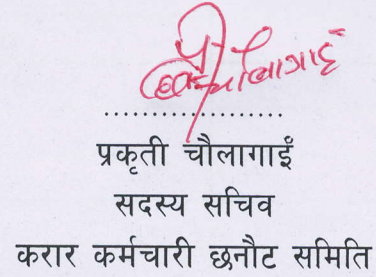 ..................
प्रकृती चौलागाईं
सदस्य सचिव
करार कर्मचारी छनौट समिति